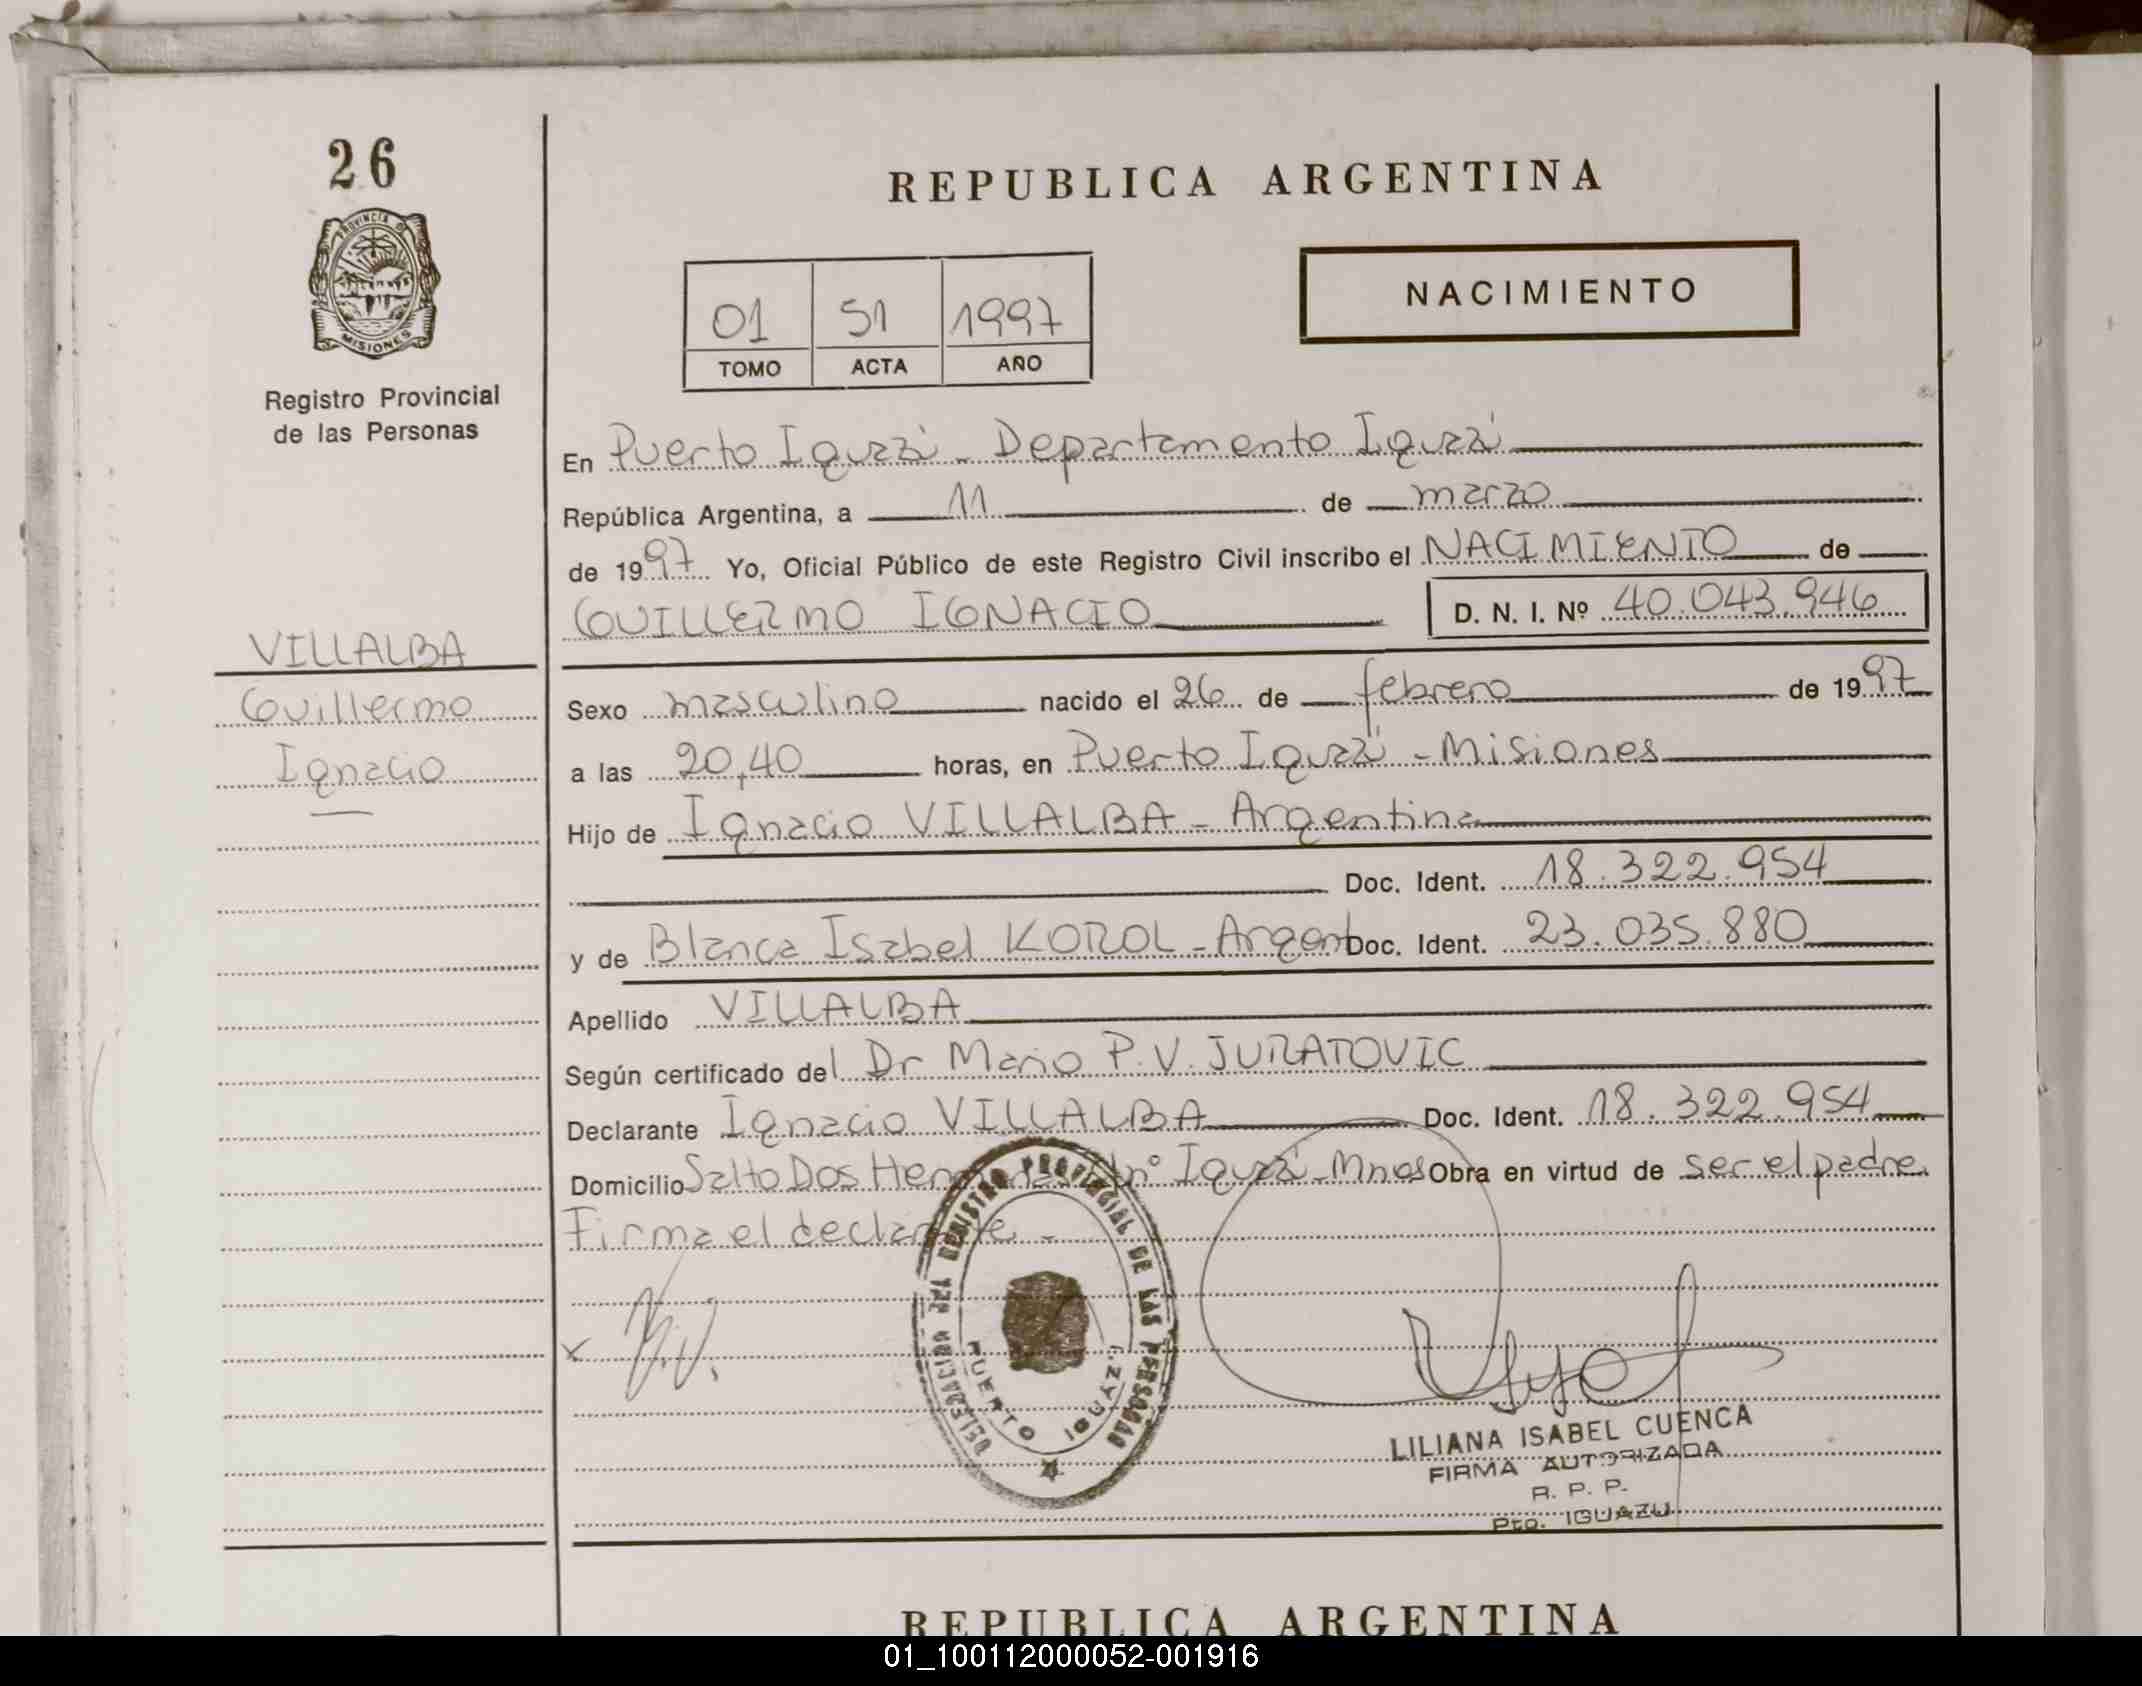 26
PROVINCIA DE
MISIONES
Registro Provincial
de las Personas
REPUBLICA ARGENTINA
01 51 1997
TOMO ACTA AÑO
NACIMIENTO
En Puerto Iguazú - Departamento Iguazú
República Argentina, a 11 de marzo
de 1997 Yo, Oficial Público de este Registro Civil inscribo el NACIMIENTO de
GUILLERMO IGNACIO D. N. I. Nº 40.043.946
VILLALBA
Guillermo
Ignacio
Sexo masculino nacido el 26 de febrero de 1997
a las 20,40 horas, en Puerto Iguazú - Misiones
Hijo de Ignacio VILLALBA - Argentina
Doc. Ident. 18.322.954
y de Blanca Isabel KOROL - Argent Doc. Ident. 23.035.880
Apellido VILLALBA
Según certificado del Dr Mario P.V. JURATOVIC
Declarante Ignacio VILLALBA Doc. Ident. 18.322.954
Domicilio Salto Dos Hermanas Iguazú - Mnes Obra en virtud de ser el padre
Firma el declarante -
DELEGACION DEL REGISTRO PROVINCIAL DE LAS PERSONAS
PUERTO IGUAZU
LILIANA ISABEL CUENCA
FIRMA AUTORIZADA
R. P. P.
Pto. IGUAZU
REPUBLICA ARGENTINA
01_100112000052-001916